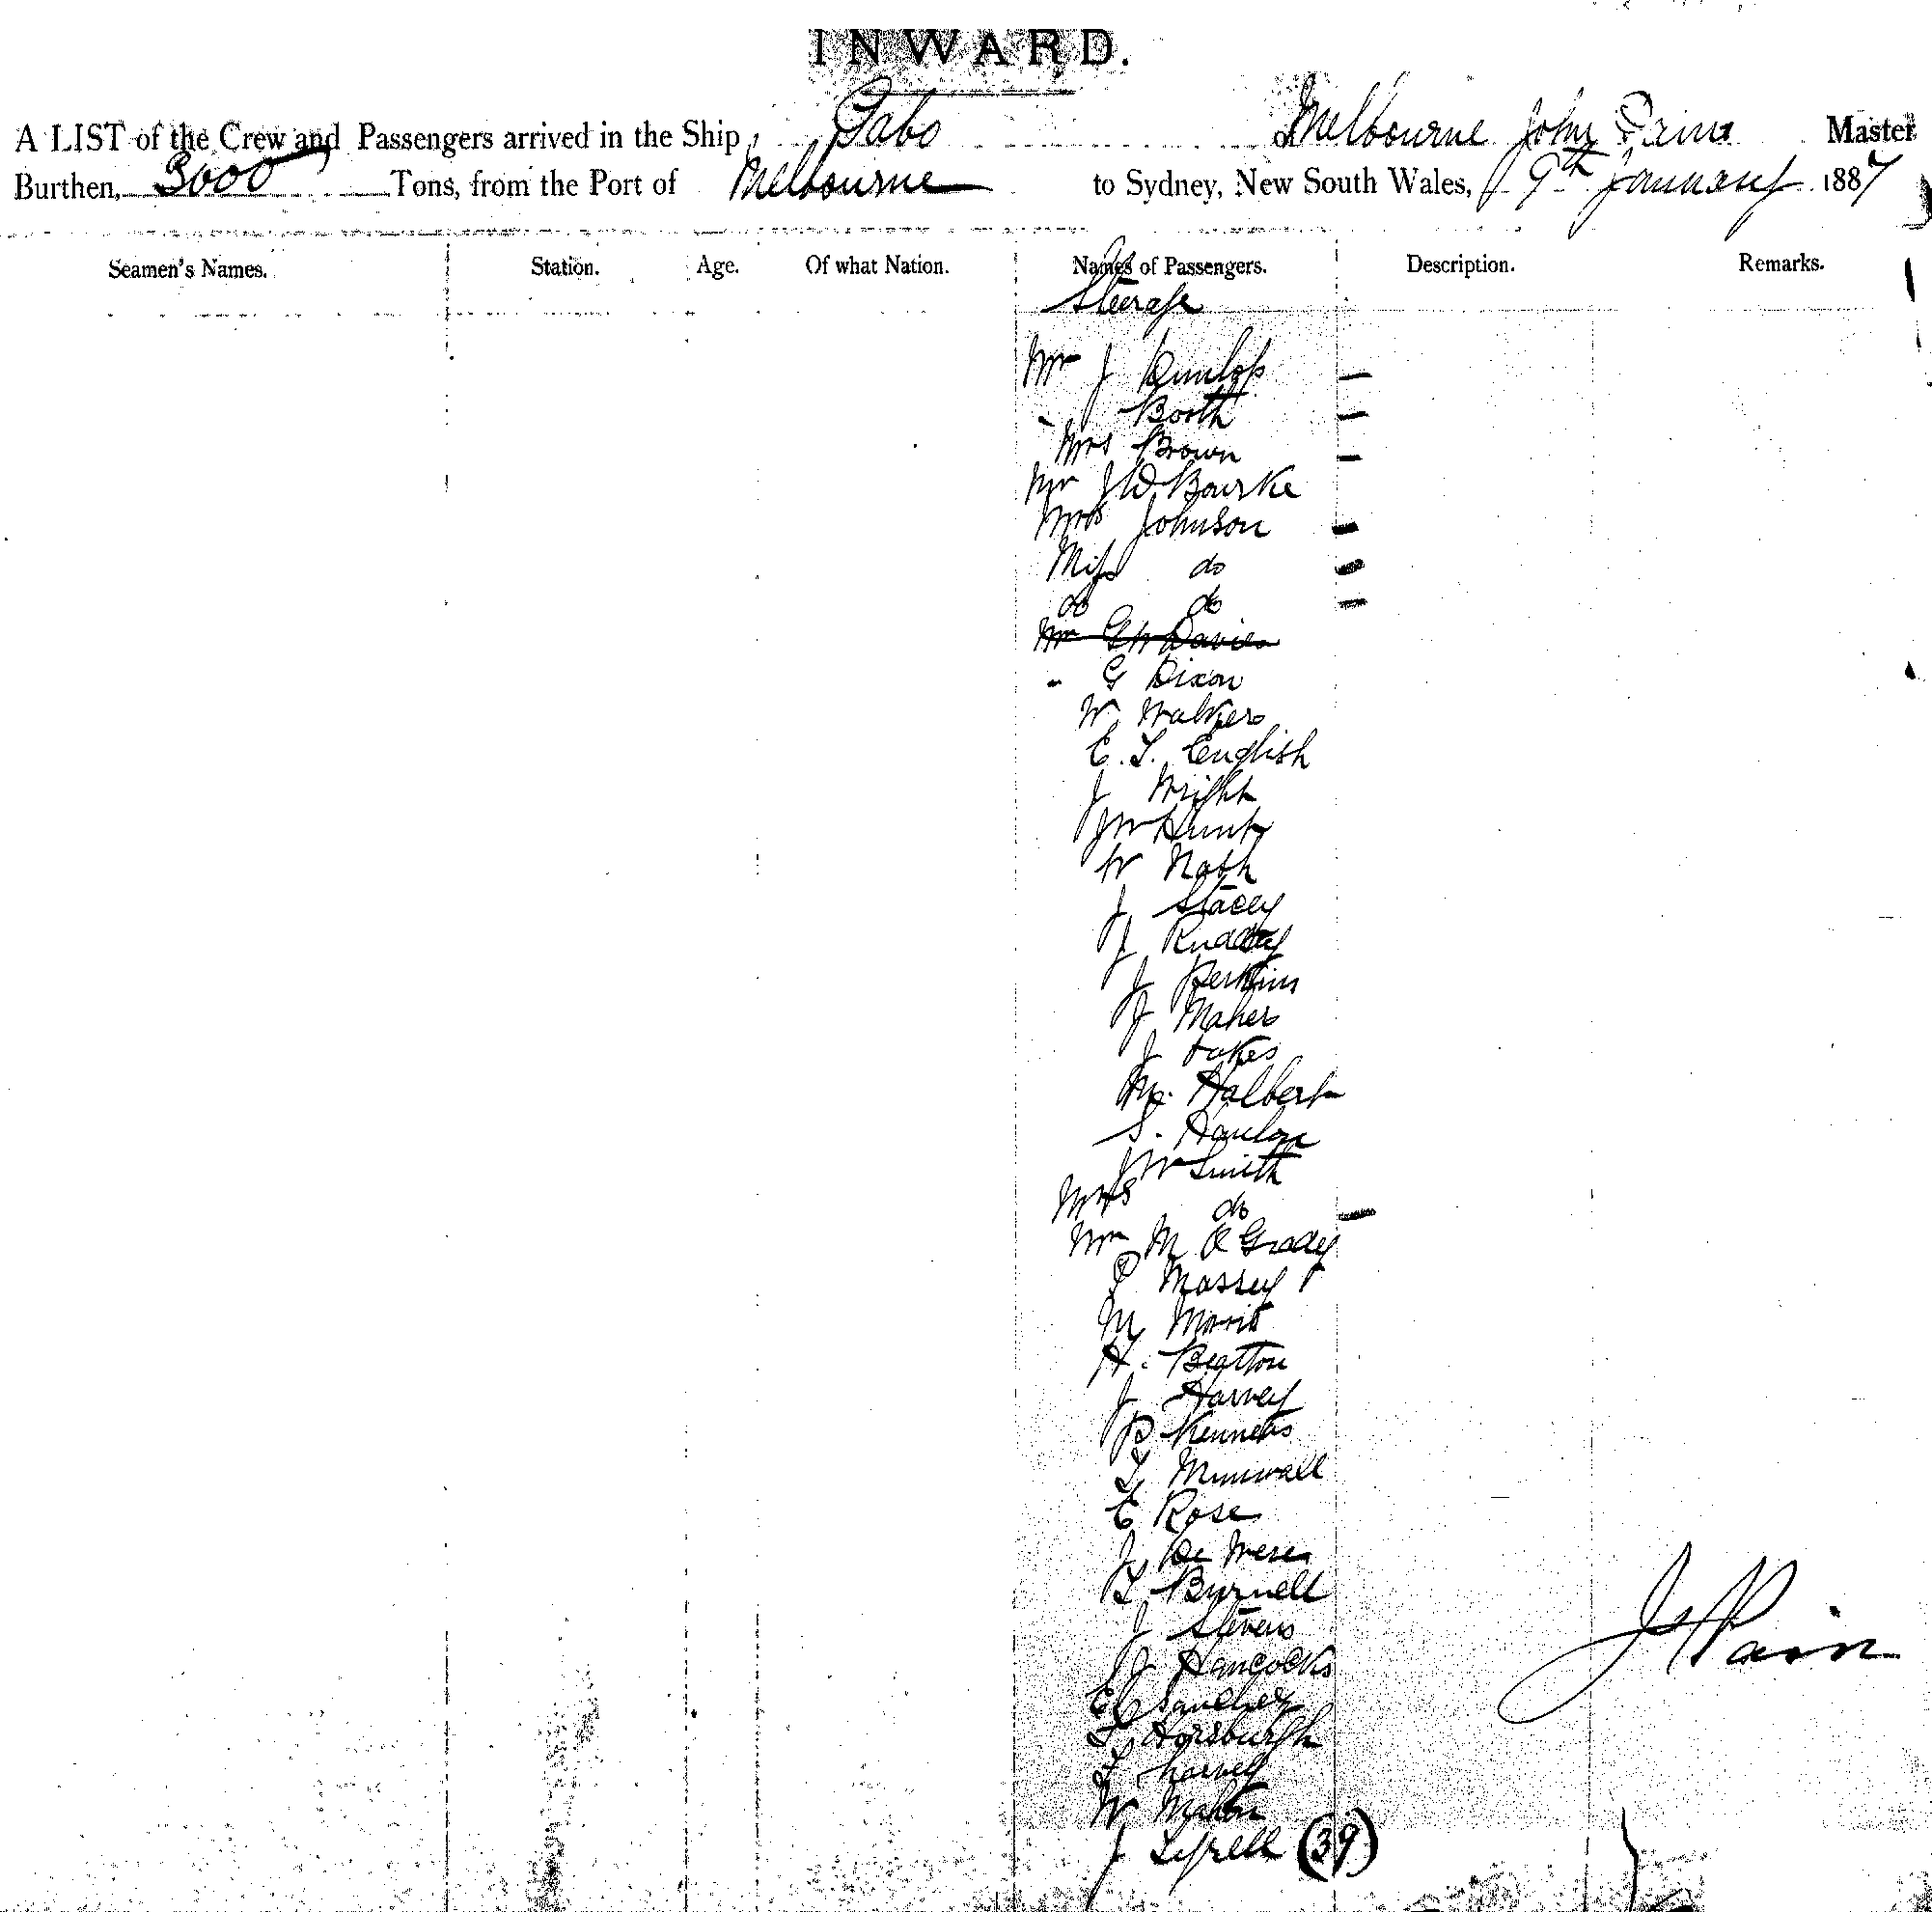 INWARD.
A LIST of the Crew and Passengers arrived in the Ship, Gabo of Melbourne John Master
Burthen, 3000 Tons, from the Port of Melbourne to Sydney, New South Wales, 9th January 1887
Seamen's Names. Station. Age. Of what Nation. Names of Passengers. Description. Remarks.
Steerage
Mr J Dunlop —
" Booth —
Mrs Brown —
Mr J W. Bourke
Mrs Johnson —
Miss do —
do do —
Mr G W Davies
" G Dixon
W. Walkers
E. T. English
J Wright
J W Hunt
W Nash
J Stacey
J Ruddy
J Perkins
J Maher
J
Halbert
S. Hanlon
J W Smith
Mrs do —
Mr M O Grady
P Massey
M
H. Beatton
J Harvey
P
T
E Rose
J De
T Burnell
J Stevens
J Hancocks
E
T Horsburgh
T Harvey
W
J Tyrell (39)
J Pain